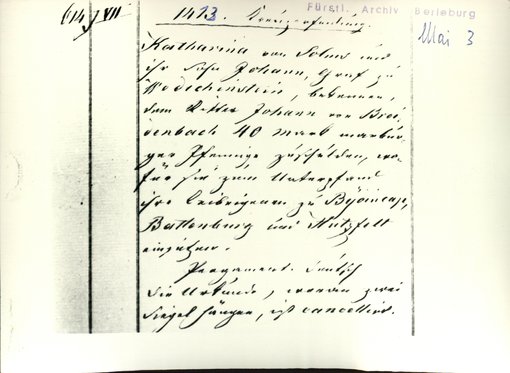 614 VII
1413. Kreuzerfindung.
Fürstl. Archiv Berleburg
Mai 3
Katharina von Solms und
ihr Sohn Johann, Graf zu
bekennen,
dem Ritter Johann von Brei
denbach 40 mark marbur
ger Pfennige zu schulden, wo
für sie zum Unterpfand
ihre Leibeignen zu
Battenburg und Hatzfelt
einsetzen.
Pergament. Deutsch
Die Urkunde, woran zwei
Siegel hängen, ist cancelliert.